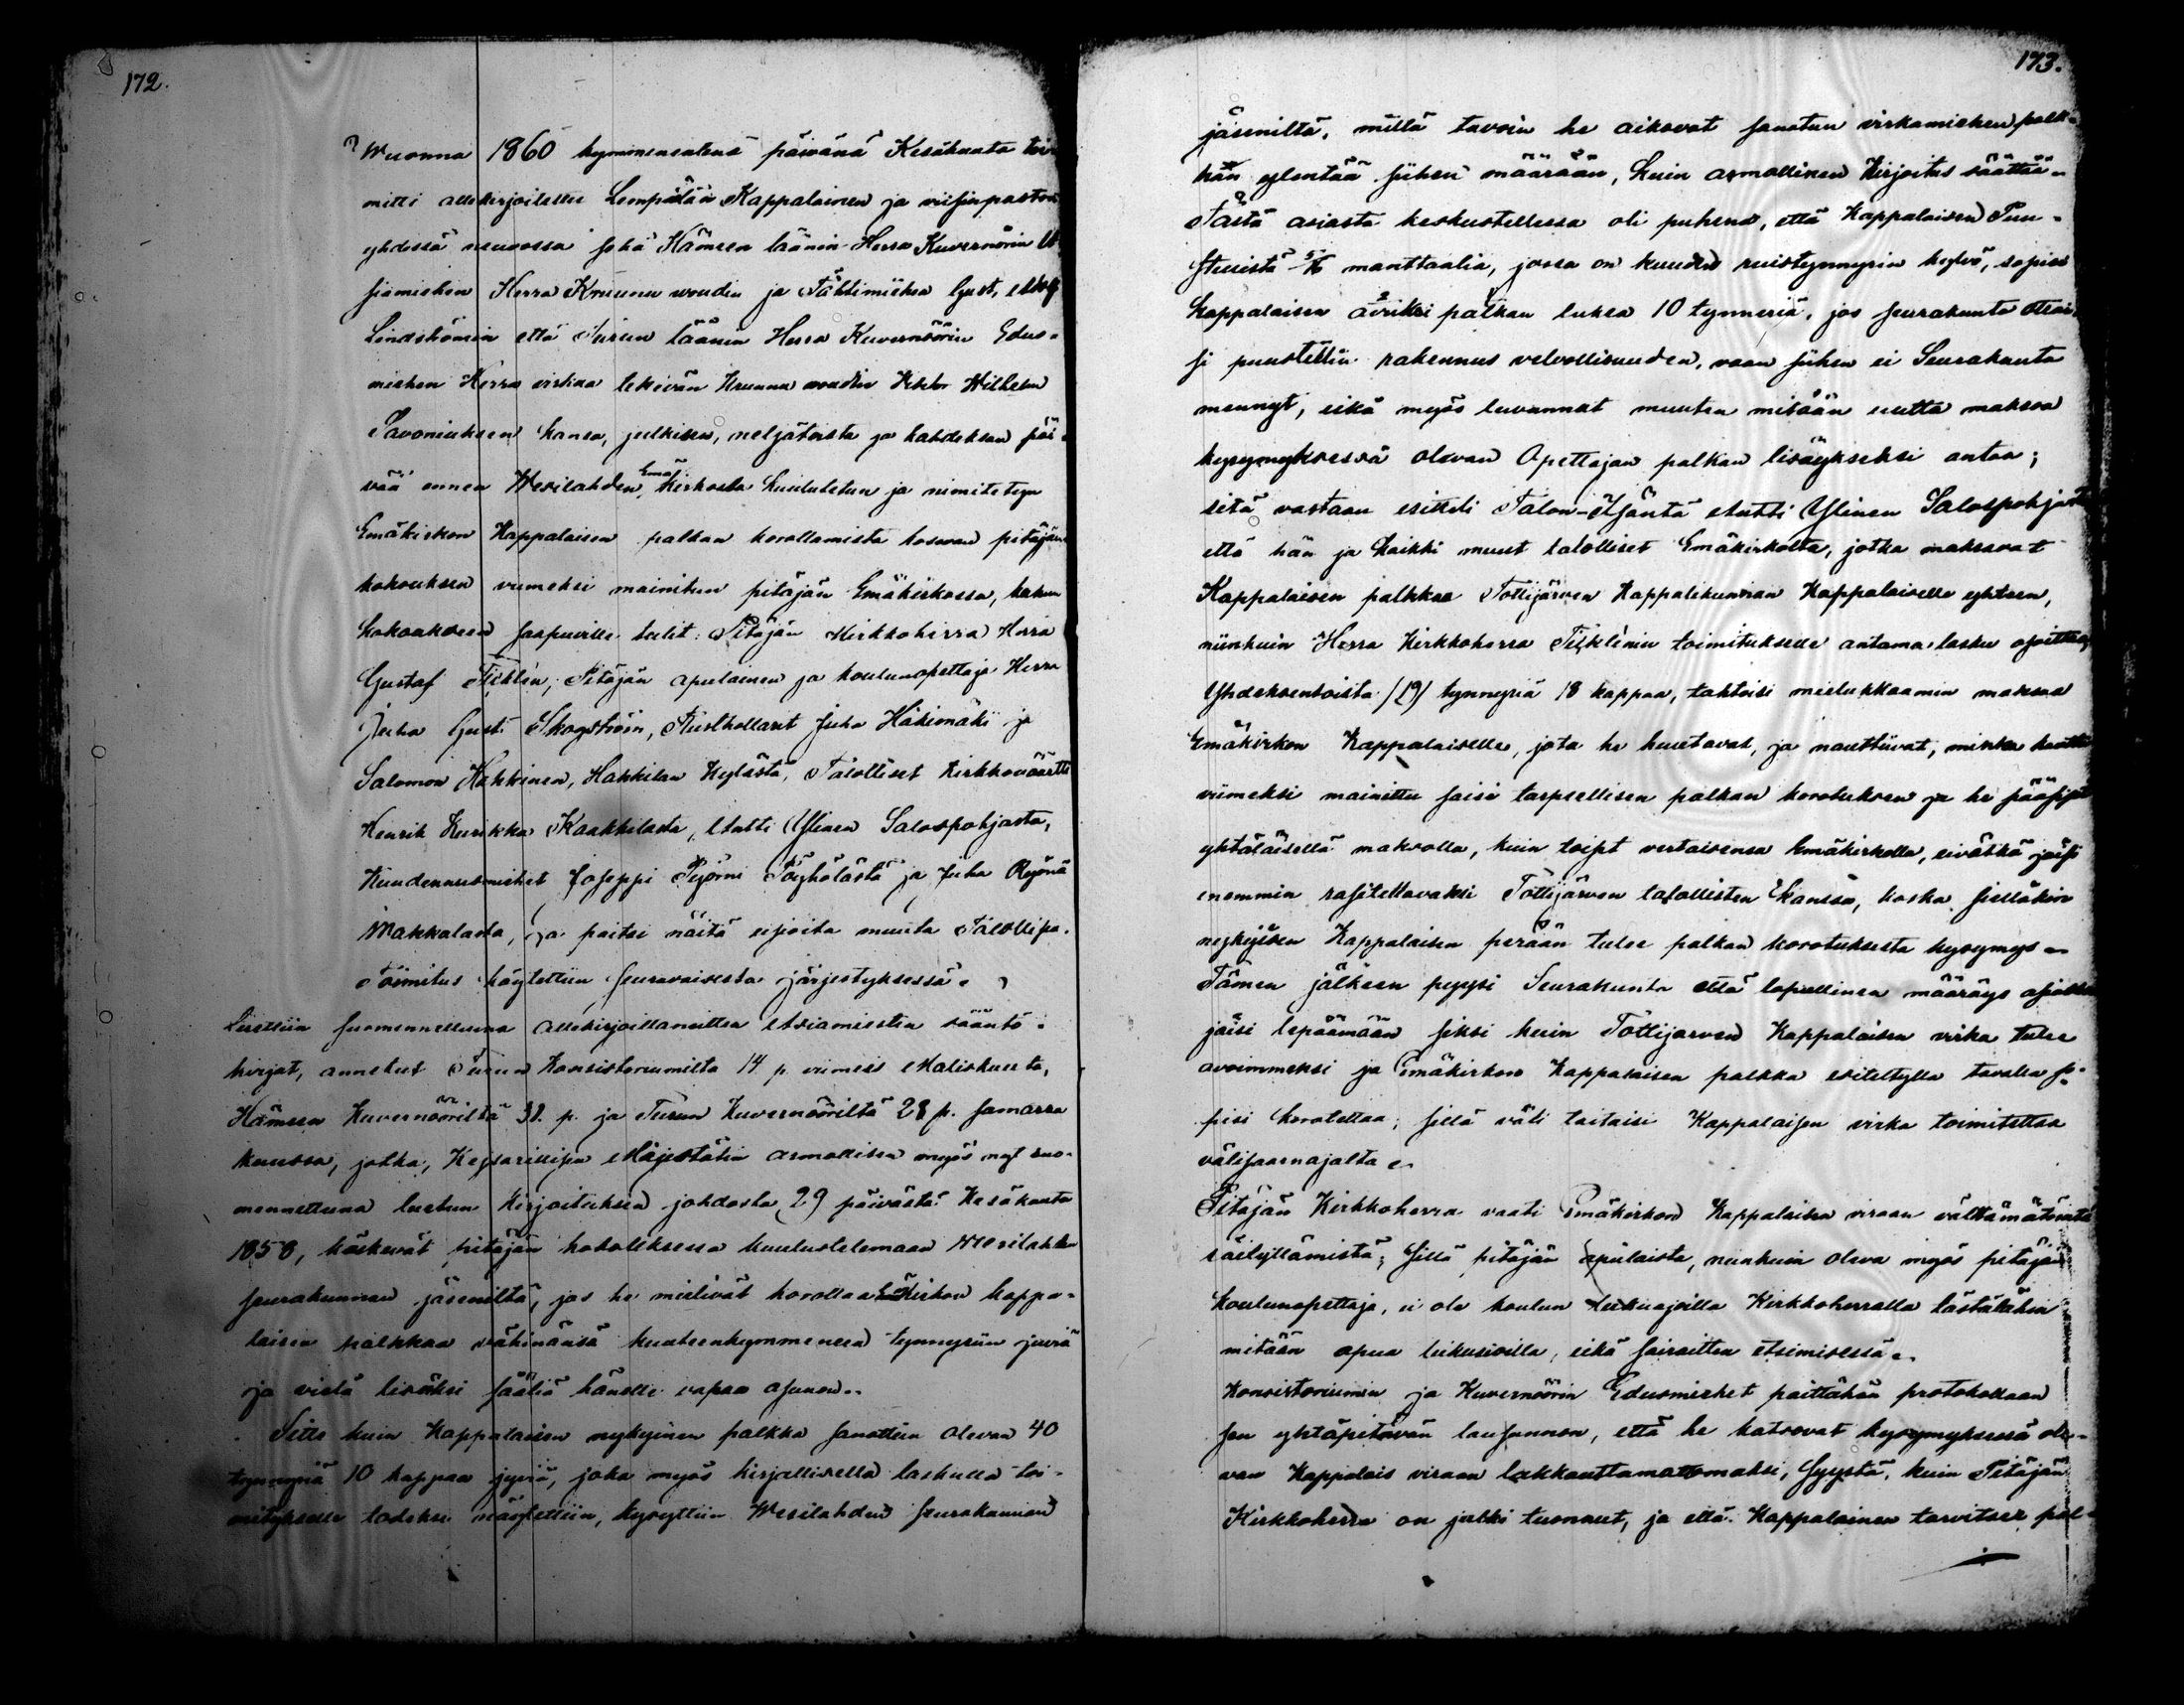 172.
Wuonna 1860 kymmenentenä päiwänä Kesäkuuta toi-
mitti allekirjoitettu Lempäälän Kappalainen ja
yhdessä neuwossa sekä Hämeen läänin Herra Kuvernörin
siamiehen Herra Kruunu woudin ja Tähtimiehen Gust.
Lindströmin että Turun läänin Herra Kuvernöörin Edus-
miehen Herra virkaa tekevän Kruunu woudin Wilhelm
Savoniuksen kansa, julkisen, neljätoista ja kahdeksan päi-
vää ennen Wesilahden Emä Kirkosta kuulutetun ja nimitetyn
Emäkirkon Kappalaisen palkan korottamista koskevan pitäjän
kokouksen viimeksi mainitun pitäjän Emäkirkossa, kuhun
kokoukseen saapuville tulit: Pitäjän Kirkkoherra Herra
Gustaf Ticklén, Pitäjän apulainen ja koulunopettaja Herra
Juha Gust. Skogström, Rusthollarit Juha Häkimäki ja
Salomon Hakkinen, Hakkilan Kylästä, Talolliset Kirkkoväärtti
Henrik Kurikka Kaakkilasta, Matti Ylinen Salospohjasta,
Kuudennusmiehet Joseppi Pyörni Pöyhölästä ja Juha Ryönä
Makkalasta, ja paitsi näitä usjoita muuta Talollisia.
Toimitus käytettiin seuravaisesta järjestyksessä.
Luettiin suomennettuna allekirjoittaneitten Asiamiesten sääntö-
kirjat, annetut Turun Konsistoriumilta 14 p. viimeis Maliskuuta,
Hämeen Kuvernööriltä 31. p. ja Turun Kuvernööriltä 28 p. samassa
kuussa, jotka, Keysarillisen Majestätin armollisen myös nyt suo-
mennettuna luetun Kirjoituksen johdosta 29 päivästä Kesäkuuta
1858, käskevät pitäjän kokouksessa kuulustelemaan Wesilahden
seurakunnan jäseniltä, jos he mielivät korottaa Emäkirkon kappa-
laisen palkkaa vähinänsä kuuteenkymmeneen tynnyriin jyviä
ja vielä lisäksi säätiä hänelle vapaa asunon..
Sitte kuin Kappalaisen nykyinen palkka sanottiin olevan 40
tynnyriä 10 kappaa jyviä, joka myös kirjallisella laskulla toi-
mitukselle todeksi näytettiin, kysyttiin Wesilahden seurakunnan
173.
jäseniltä, millä tavoin he aikovat sanotun virkamiehen palk-
han ylentää siihen määrään, kuin armollinen Kirjoitus säättää..
Tästä asiasta keskustellessa oli puhend, että Kappalaisen Puu-
stellistä 5/6 manttaalia, jossa on kuuden ruistynnyrin kylvö, sopisi
Kappalaisen palkan lukea 10 tynneriä, jos seurakunta ottai-
si puustellin rakennus velvollisuuden, vaan siihen ei Seurakunta
mennyt, eikä myös luvannut muuten mitään uutta maksoa
kysymyksessä olevan Opettajan palkan lisäykseksi antaa;
sitä vastaan esitteli Talon-Isäntä Matti Ylinen Salospohjasta
että hän ja kaikki muut talolliset Emäkirkolta, jotka maksavat
Kappalaisen palkkaa Tottijärven Kappelikunnan Kappalaiselle yhteen,
niinkuin Herra Kirkkoherra Ticklénin toimitukselle antama lasku osoittaa,
Yhdeksentoista (19) tynnyriä 18 kappaa, tahtoisi mielukkaamin maksaa
Emäkirkon Kappalaiselle, jota he kuulavat, ja nauttiivat, minka kautta
viimeksi mainittu saisi tarpeellisen palkan korotuksen ja he pääsisi
yhtäläisellä maksolla, kuin toiset vertaisensa Emäkirkolla, eivätkä jäisi
enemmin rasitettavaksi Tottijärven talollisten kanssa, koska sielläkin
nykyisen Kappalaisen perään tulee palkan korotuksesta kysymys..
Tämen jälkeen pyysi Seurakunta että lopullinen määräys asiassa
jäisi lepäämään siksi kuin Tottijarven Kappalaisen virka tulee
avoimmeksi ja Emäkirkon Kappalaisen palkka esitetylla tavalla so-
pisi korotettaa; sillä väli taitaisi Kappalaisen virka toimitettaa
välisaarnajalta..
Pitäjän Kirkkoherra vaati Emäkirkon Kappalaisen viraan välttämätöintä
säilyttämistä; Sillä pitäjän apulaista, niinkuin oleva myös pitäjän
koulunopettaja, ei ole koulun lukuajoilla Kirkkoherralla tästälähin
mitään apua lukusioilla, eikä sairaitten etsimisessä..
Konsistoriumin ja Kuvernöörin Edusmiehet paittähän protokollaan
sen yhtäpitävän lausunnon, että he katsovat kysymyksessä ole-
van Kappalais viraan lakkauttamattomaksi, Syystä, kuin Pitäjän
Kirkkoherra on julki tuonnut, ja että Kappalainen tarvitsee pal-